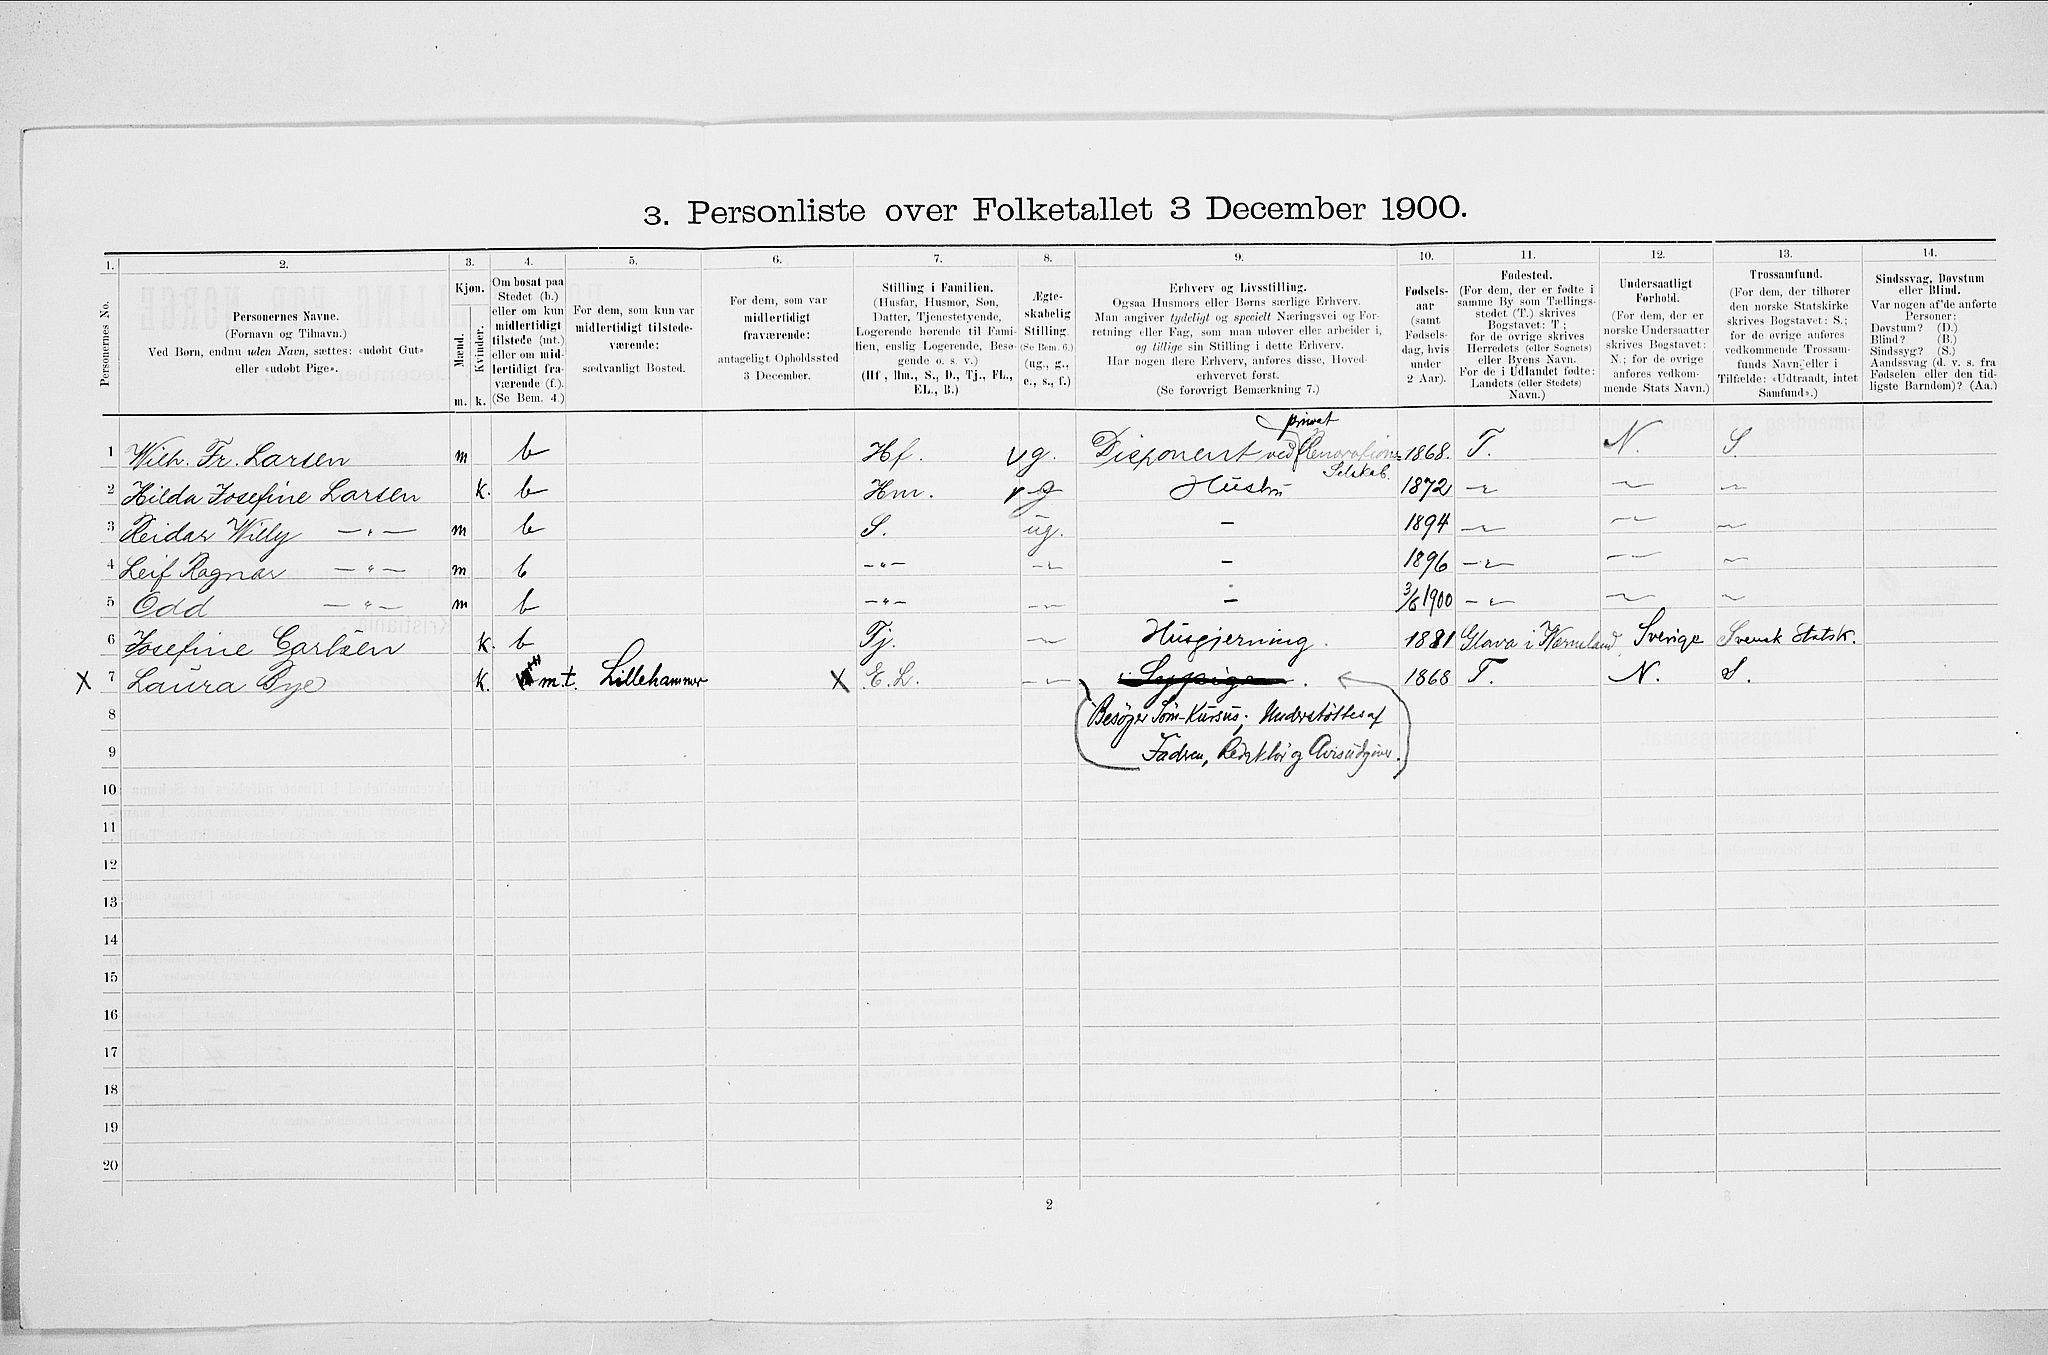 3. Personliste over Folketallet 3 December 1900.
1. 2. 3. 4. 5. 6. 7. 8. 9. 10. 11. 12. 13. 14.
Personernes No.
Personernes Navne.
(Fornavn og Tilnavn.)
Ved Børn, endnu uden Navn, sættes: «udøbt Gut»
eller «udøbt Pige».
Kjøn.
Mænd.
Kvinder.
m. k.
Om bosat paa
Stedet (b.)
eller om kun
midlertidigt
tilstede (mt.)
eller om mid-
lertidigt fra-
værende (f.).
(Se Bem. 4.)
For dem, som kun var
midlertidigt tilstede-
værende:
sædvanligt Bosted.
For dem, som var
midlertidigt
fraværende:
antageligt Opholdssted
3 December.
Stilling i Familien.
(Husfar, Husmor, Søn,
Datter, Tjenestetyende,
Logerende hørende til Fami-
lien, enslig Logerende, Besø-
gende o. s. v.)
(Hf., Hm., S., D., Tj., FL.,
EL., B.)
Ægte-
skabelig
Stilling.
(Se Bem. 6.)
(ug., g.,
e., s., f.)
Erhverv og Livsstilling.
Ogsaa Husmors eller Børns særlige Erhverv.
Man angiver tydeligt og specielt Næringsvei og For-
retning eller Fag, som man udøver eller arbeider i,
og tillige sin Stilling i dette Erhverv.
Har nogen flere Erhverv, anføres disse, Hoved-
erhvervet først.
(Se forøvrigt Bemærkning 7.)
Fødsels-
aar
(samt
Fødsels-
dag, hvis
under
2 Aar).
Fødested.
(For dem, der er fødte i
samme By som Tællings-
stedet (T.) skrives
Bogstavet: T;
for de øvrige skrives
Herredets (eller Sognets)
eller Byens Navn.
For de i Udlandet fødte:
Landets (eller Stedets)
Navn.)
Undersaatligt
Forhold.
(For dem, der er
norske Undersaatter
skrives Bogstavet:
N.; for de øvrige
anføres vedkom-
mende Stats Navn.)
Trossamfund.
(For dem, der tilhører
den norske Statskirke
skrives Bogstavet: S.;
for de øvrige anføres
vedkommende Trossam-
funds Navn, eller i
Tilfælde: «Udtraadt, intet
Samfund».)
Sindssvag, Døvstum
eller Blind.
Var nogen af de anførte
Personer:
Døvstum? (D.)
Blind? (B.)
Sindssyg? (S.)
Aandssvag (d. v. s. fra
Fødselen eller den tid-
ligste Barndom)? (Aa.)
privat
1 Wilh. Fr. Larsen m b Hf. g. Disponent ved Renovations 1868. T. N. S.
Selskab.
2 Hilda Josefine Larsen k. b Hm. g Hustru 1872 —"— —"— —"—
3 Reidar Willy —"— m b S. ug. - 1894 —"— —"— —"—
4 Leif Ragnar —"— m b —"— —"— - 1896 —"— —"— —"—
5 Odd —"— m b —"— —"— - 3/6 1900 —"— —"— —"—
6 Josefine Carlsen k. b Tj. —"— Husgjerning. 1881 Glava i Wermland Sverige Svensk Statsk.
X 7 Laura Bye k. m.t. Lillehammer X E. L. —"— 1868 T. N. S.
8 Besøger Søm-Kursus; Understøttes af
9 Fadren, Redaktør og Avisudgiver.
10
11
12
13
14
15
16
17
18
19
20
2